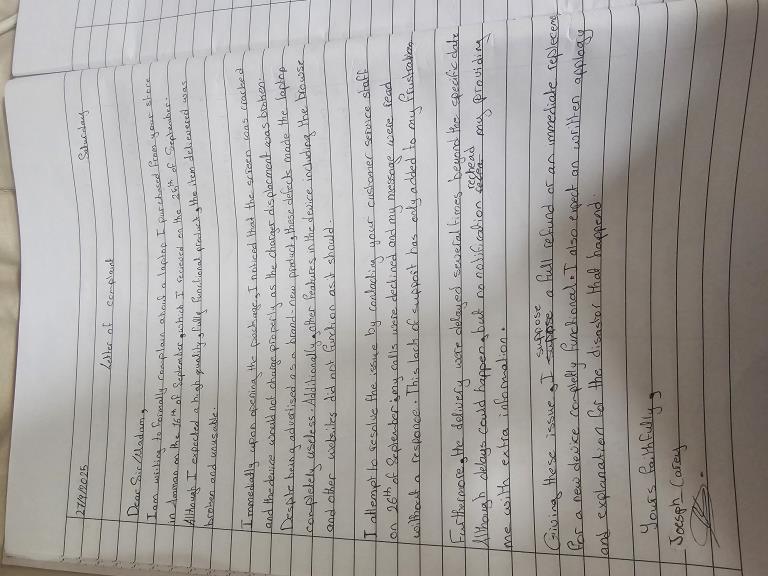 27/9/2025 Saturday
Letter of complaint
Dear Sir/Madam,
I am writing to formally complain about a laptop I purchased from your store
in Amman on the 16th of September, which I recieved on the 26th of September.
Although I expected a high-quality, fully functional product, the item delivered was
broken and unusable.
Immediatly upon opening the package, I noticed that the screen was cracked
and the device would not charge properly as the charger displacment was broken.
Despite being advertised as a brand-new product, these defects made the laptop
completely useless. Additionally, other features in the device including the browse
and other websites did not function as it should.
I attempt to resolve the issue by contacting your customer service staff
on 26th of September; my calls were declined and my message were read
without a response. This lack of support has only added to my frustration
Furthermore, the delivery were delayed several times beyond the specific date
Although delays could happen, but no notification reached my providing
me with extra information.
Giving these issue, I suppose a full refund or an immediate replecem
for a new device completly functional. I also expect an written appology
and explanation for the disastor that happend.
Yours faithfully,
Joesph Carey